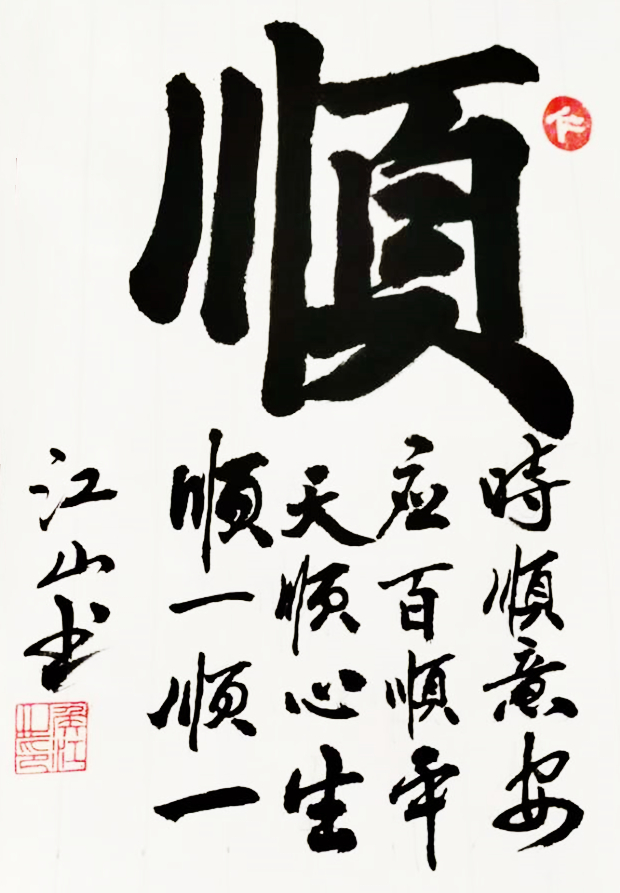 順
仁
時順意安
应百順平
天顺心生
順一顺一
江山书